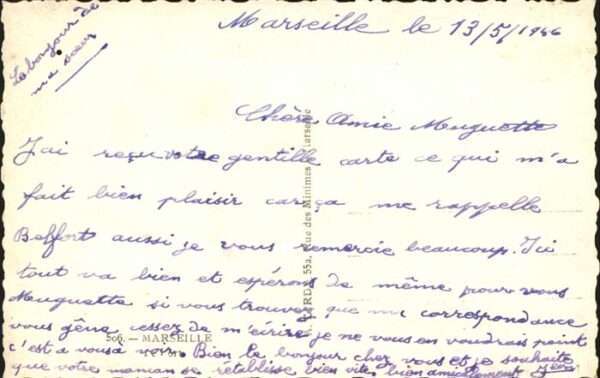 Marseille le 13/5/1946
Le bonjour de
ma sœur
Chère Amie Muguette
J'ai reçu votre gentille carte ce qui m'a
fait bien plaisir car ça me rappelle
Belfort aussi je vous remercie beaucoup. Ici
tout va bien et espérons de même pour vous
Muguette si vous trouvez que ma correspondance
vous gêne cessez de m'écrire je ne vous en voudrais point
c'est a vous a voir. Bien le bonjour chez vous et je souhaite
que votre maman se rétablisse bien vite, bien amicalement
506. — MARSEILLE
55a, Rue des Minimes